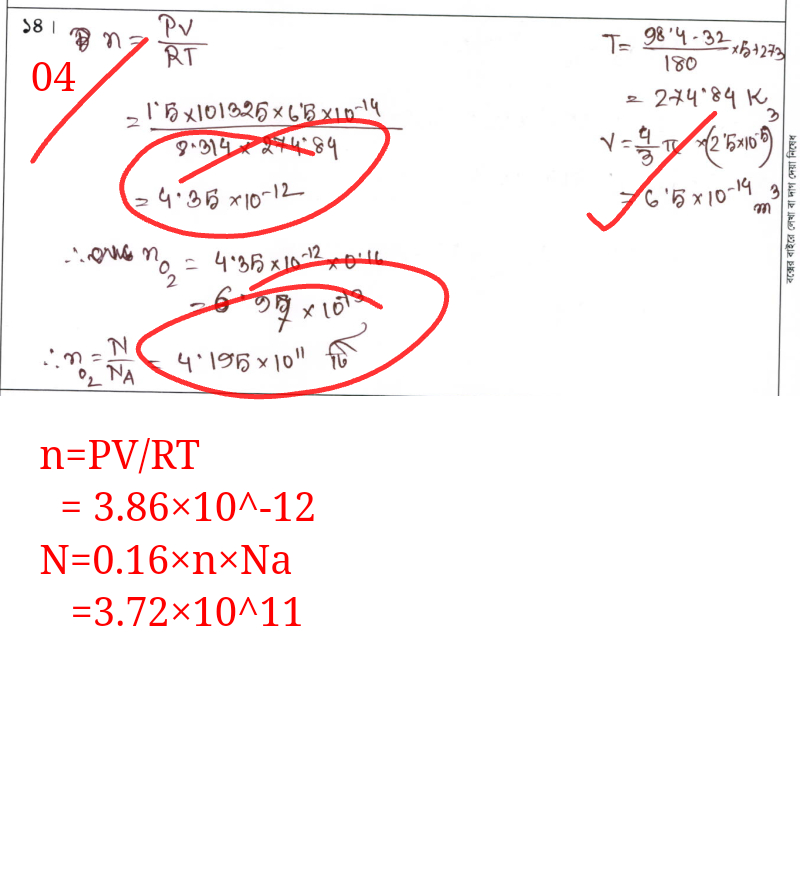 ১৪।
n = PV/RT
04
= 1.5×101325×6.5×10^-14 / 8.314×274.84
= 4.35×10^-12
∴ n_O2 = 4.35×10^-12×0.16
= 10^-13
∴ n_O2 = N/N_A = 4.195×10^11 টি
T = 98.4-32/180 ×5+273
= 274.84 K
V = 4/3 π ×(2.5×10^-5)^3
= 6.5×10^-14 m^3
বক্সের বাইরে লেখা বা দাগ দেয়া নিষেধ
n=PV/RT
= 3.86×10^-12
N=0.16×n×Na
=3.72×10^11